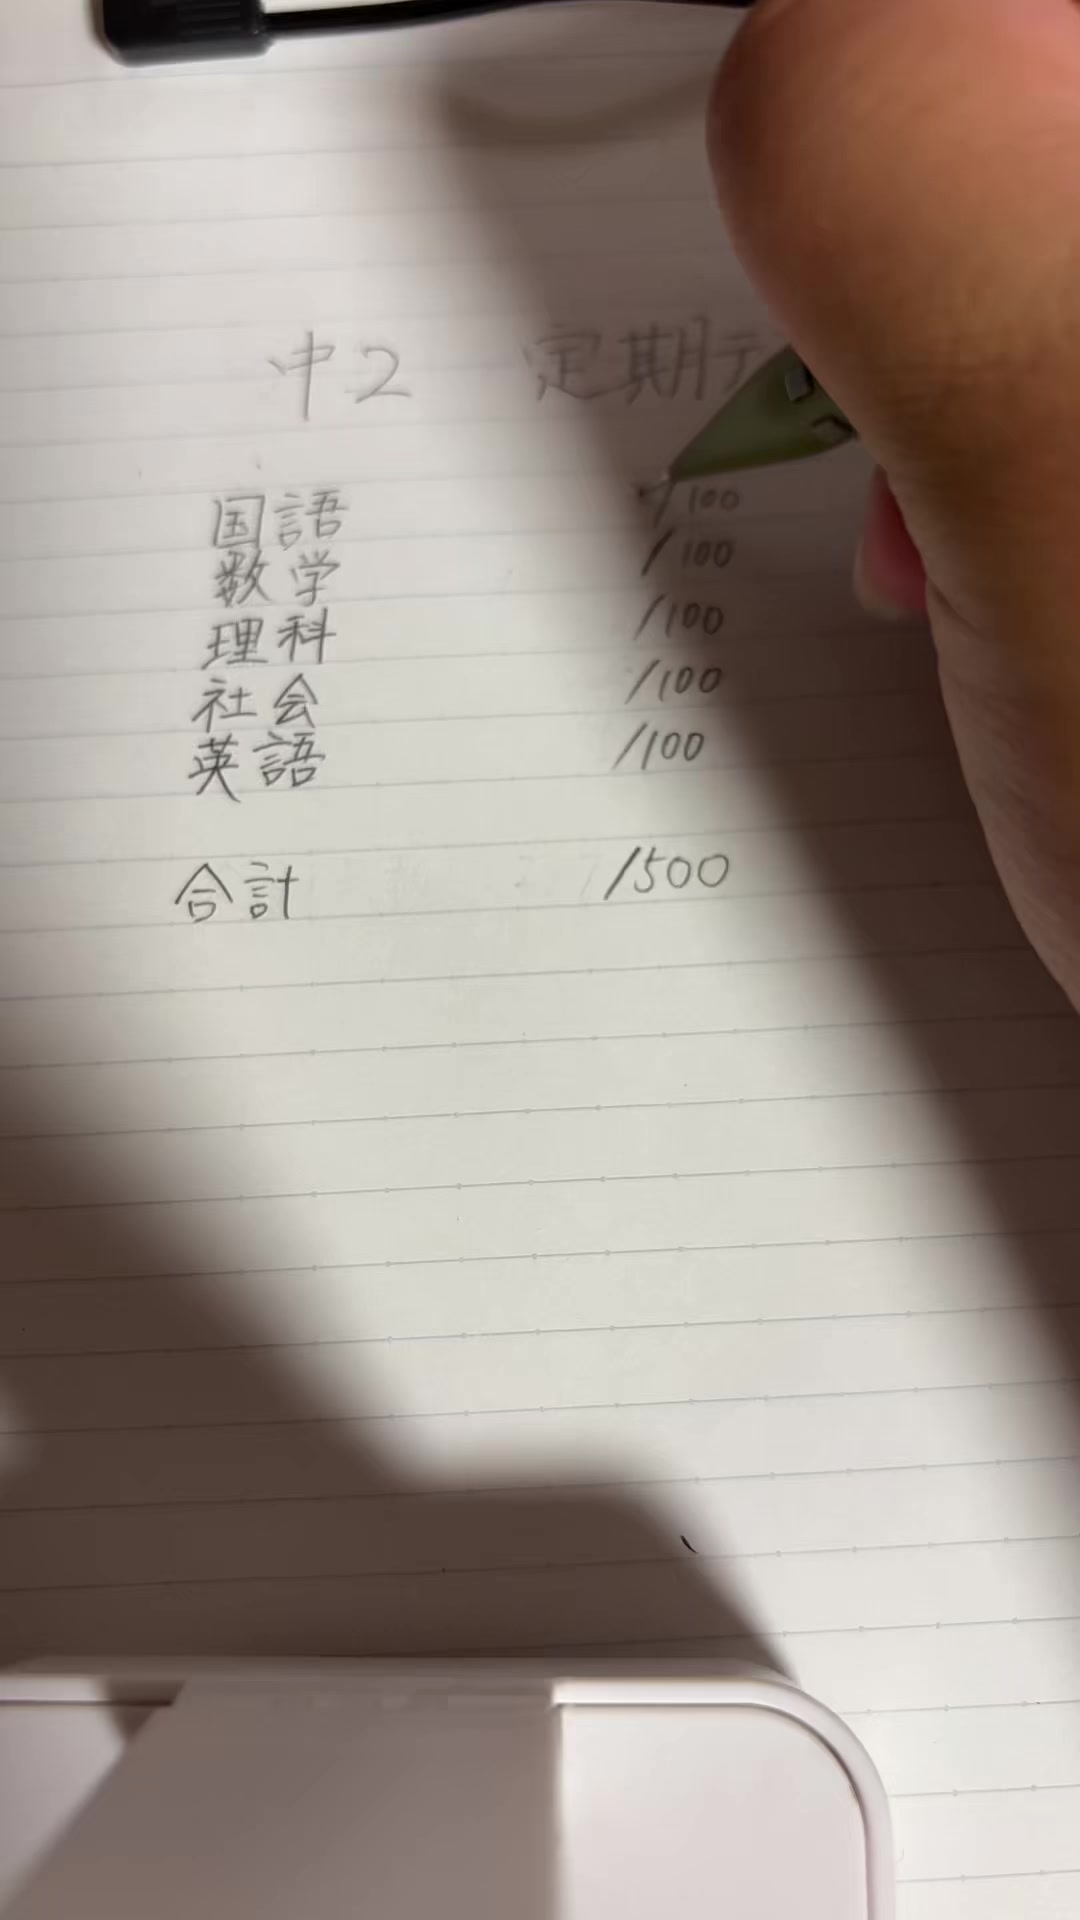 中2 定期テ
国語 /100
数学 /100
理科 /100
社会 /100
英語 /100
合計 /500